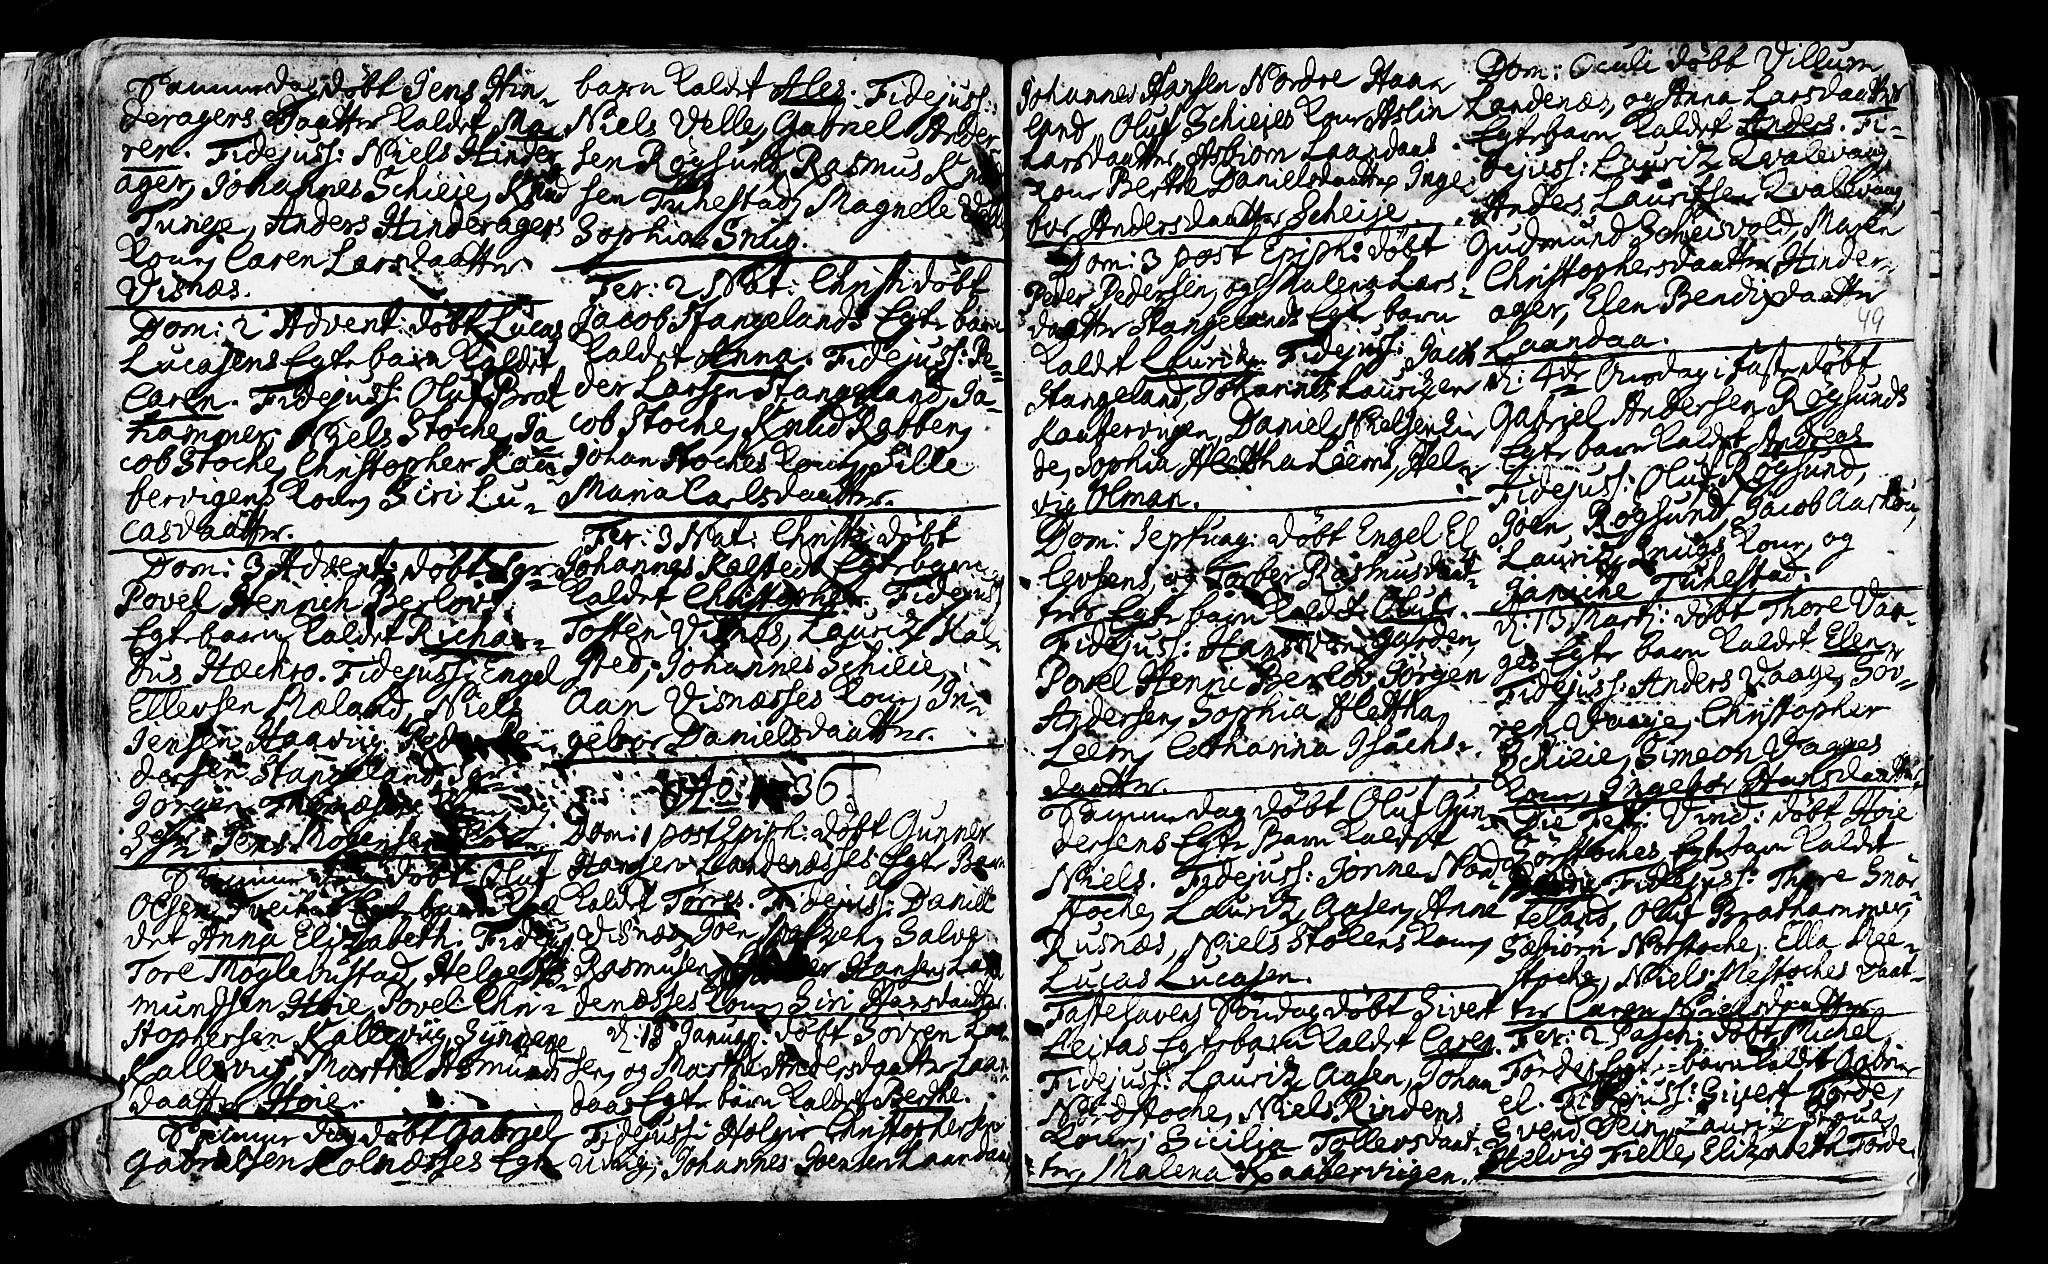 Samme dag døbt Jens Hin-
deragers Daatter kaldet Ma-
ren. Fidejuss: Niels Hinder
ager, Johannes Schieie, Knud
Tunge, Anders Hinderagers
Kone, Caren Larsdaatter
Visnæs.
Dom: 2 Advent: døbt Lucas
Lucasens Egte barn kaldet
Caren. Fidejuss: Oluf Brat
hammer, Niels Stoche, Ja
cob Stoche, Christopher Raa
bervigens Kone, Siri Lu-
casdaatter.
Dom: 3 Advent: døbt
Povel Hennich Berlovs
Egte barn kaldet Richar-
dus Hachro. Fidejuss: Engel
Ellevsen Mæland, Niels
Jensen Haavig, Peder
dersen Stangeland
Jørgen
Jens Mogensen
Samme dag døbt Oluf
Olsen Egte barn kal
det Anna Elizabeth. Fidejuss
Tore Møglebustad, Helge
mundsen Høie, Povel Chri-
stophersen Kallevig, Sunneve
Kallevig, Marthe Asmunds
daatter Høie.
Samme dag døbt Gabriel
Gabrielsen Kolnæsses Egte
barn kaldet Ales. Fidejuss:
Niels Velle, Gabriel Ander
sen Røgsund, Rasmus Knud
sen Tuhestad, Magnele
Sophia Snug.
Fer: 2 Nat: Christi døbt
Jacob Stangelands Egte barn
kaldet Anna. Fidejuss: Pe-
der Larsen Stangeland, Ja-
cob Stoche, Knud Rabben,
Johan Stoches Kone, Sille
Maria Carlsdaatter.
Fer: 3 Nat: Christi døbt
Johannes Kalsteds Egte barn
kaldet Christopher. Fidejuss
Tosten Visnæs, Lauritz Kal-
sted, Johannes Schieie,
Aan Visnæsses Kone, In-
gebor Danielsdaatter.
Ao: 1736
Dom: 1 post Epiph: døbt Gunner
Hansen Landenæsses Egte Barn
kaldet Torres. Fidejuss: Daniel
Visnæs, Joen Salve
Rasmusen, Hansen Lan
denæsses Kone, Siri Hansdaatter.
d: 18 Januar: døbt Søvren Lar
sen, og Marthe Andersdaatter Laan
daas Egte barn kaldet Berthe.
Fidejuss: Holger Christophersen
Udvig, Johannes Joensen Laandaas
Johannes Hansen Nordre Haa-
land, Oluf Schieies Kone Aslin
Larsdaatter, Asbiørn Laandaas
Kone Berthe Danielsdaatter, Inge
bor Andersdaatter Scheie.
Dom: 3 post Epiph: døbt
Peder Pedersen, og Malena Lars-
daatter Stangelands Egte barn
kaldet Lauritz. Fidejuss: Jacob
Stangeland, Johannes Lauritzen
Raabervigen, Daniel Nielsen
de, Sophia Hettha Leems, Hel-
vig Olman.
Dom: Septuag: døbt Engel El
levsens, og Torber Rasmusdaat-
ters Egte barn kaldet Oluf.
Fidejuss: Hans
Povel Henric Berlov, Jørgen
Andersen, Sophia Hettha
Leem, Catharina Isachs-
daatter.
Samme dag døbt Oluf Gun-
dersens Egte Barn kaldet
Niels. Fidejuss: Jonne Nord
stoche, Lauritz Aasen, Anne
Rusnæs, Niels Stolens Kone,
Lucas Lucasen.
Fastelavens Søndag døbt Sivert
Leitas Egte barn kaldet Caren.
Fidejuss: Lauritz Aasen, Johan
Nordstoche, Niels Rindens
Kone, Sicilia Tollevsdaat-
ter, Malena Raabervigen.
Dom: Oculi døbt Villum
Landenæs, og Anna Larsdaatter
Egte barn kaldet Anders. Fi-
dejuss: Lauritz Kvalevaag,
Anders Lauritsen Kvalevaag,
Gudmund Scheisvold, Maren
Christophersdaatter Hinder-
ager, Elen Bendixdaatter
49
Laandaa.
d: 4de Onsdag i faste døbt
Gabriel Andersen Røgsunds
Egte barn kaldet Andreas
Fidejuss: Oluf Røgsund,
Joen Røgsund, Jacob
Lauritz Snugs Kone, og
Janiche Tuhestad.
d: 13 Martj: døbt Thore Vaa-
ges Egte barn kaldet Elen.
Fidejuss: Anders Vaage, Søv-
ren Vaage, Christopher
Schieie, Simeon Vaages
Kone, Ingebor Hansdaatter.
Die Fest: Vird: døbt Høie
Sørstoches Egte barn kaldet
Fidejuss: Thore Snør
teland, Oluf Brathammer,
Sæbiørn Norstoche, Ella Mee-
stoche, Niels Mestoches Daat-
ter Caren Nielsdaatter.
Fer: 2 Pasch: døbt Michel
Fordes Egte barn kaldet Gabri-
el. Fidejuss: Sivert Forde,
Svend Vein, Lauritz
Helvig Fielle, Elizabeth Forde